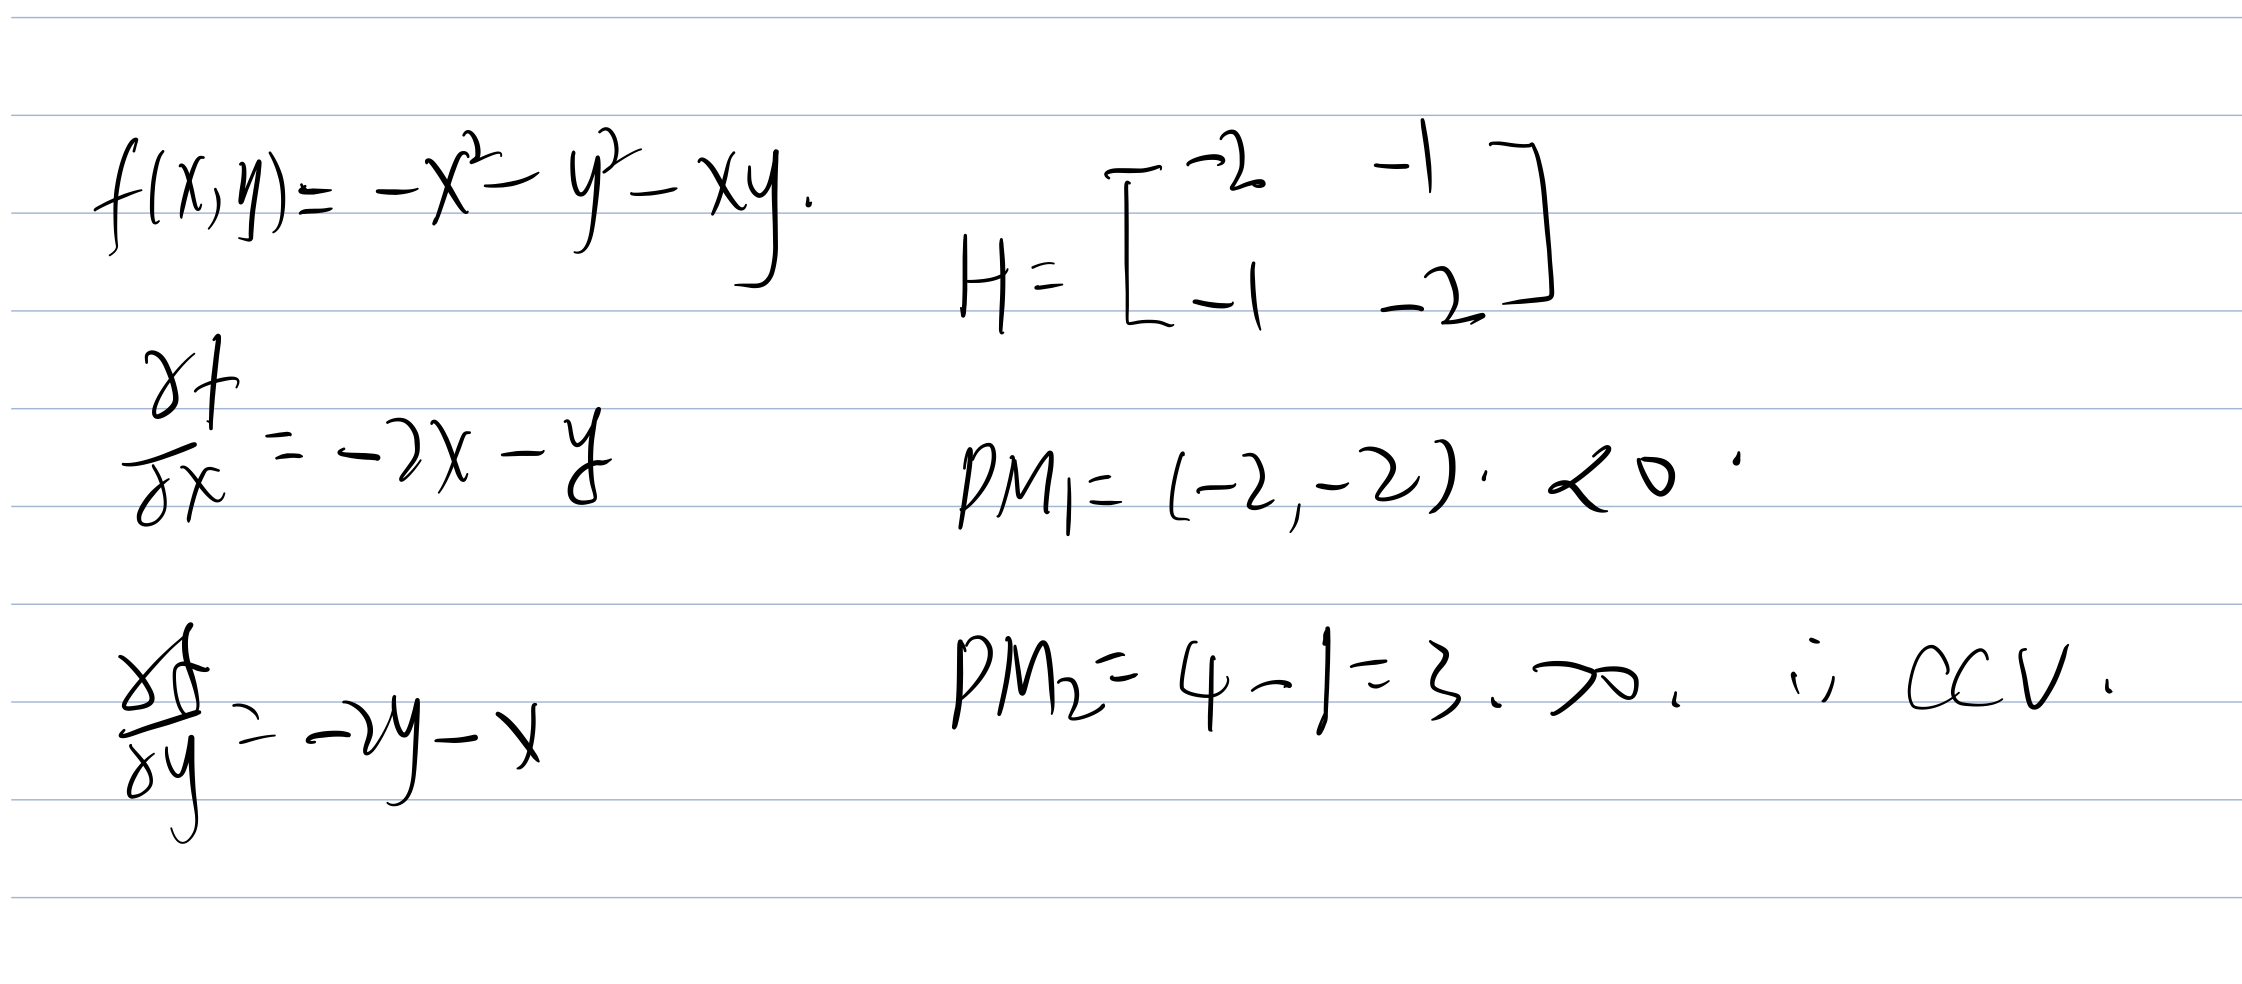 f(x,y) = -x² - y² - xy.
∂f/∂x = -2x - y
∂f/∂y = -2y - x
H = [ -2 -1
-1 -2 ]
PM₁ = (-2, -2). <0.
PM₂ = 4 - 1 = 3. >0. ∴ CCV.